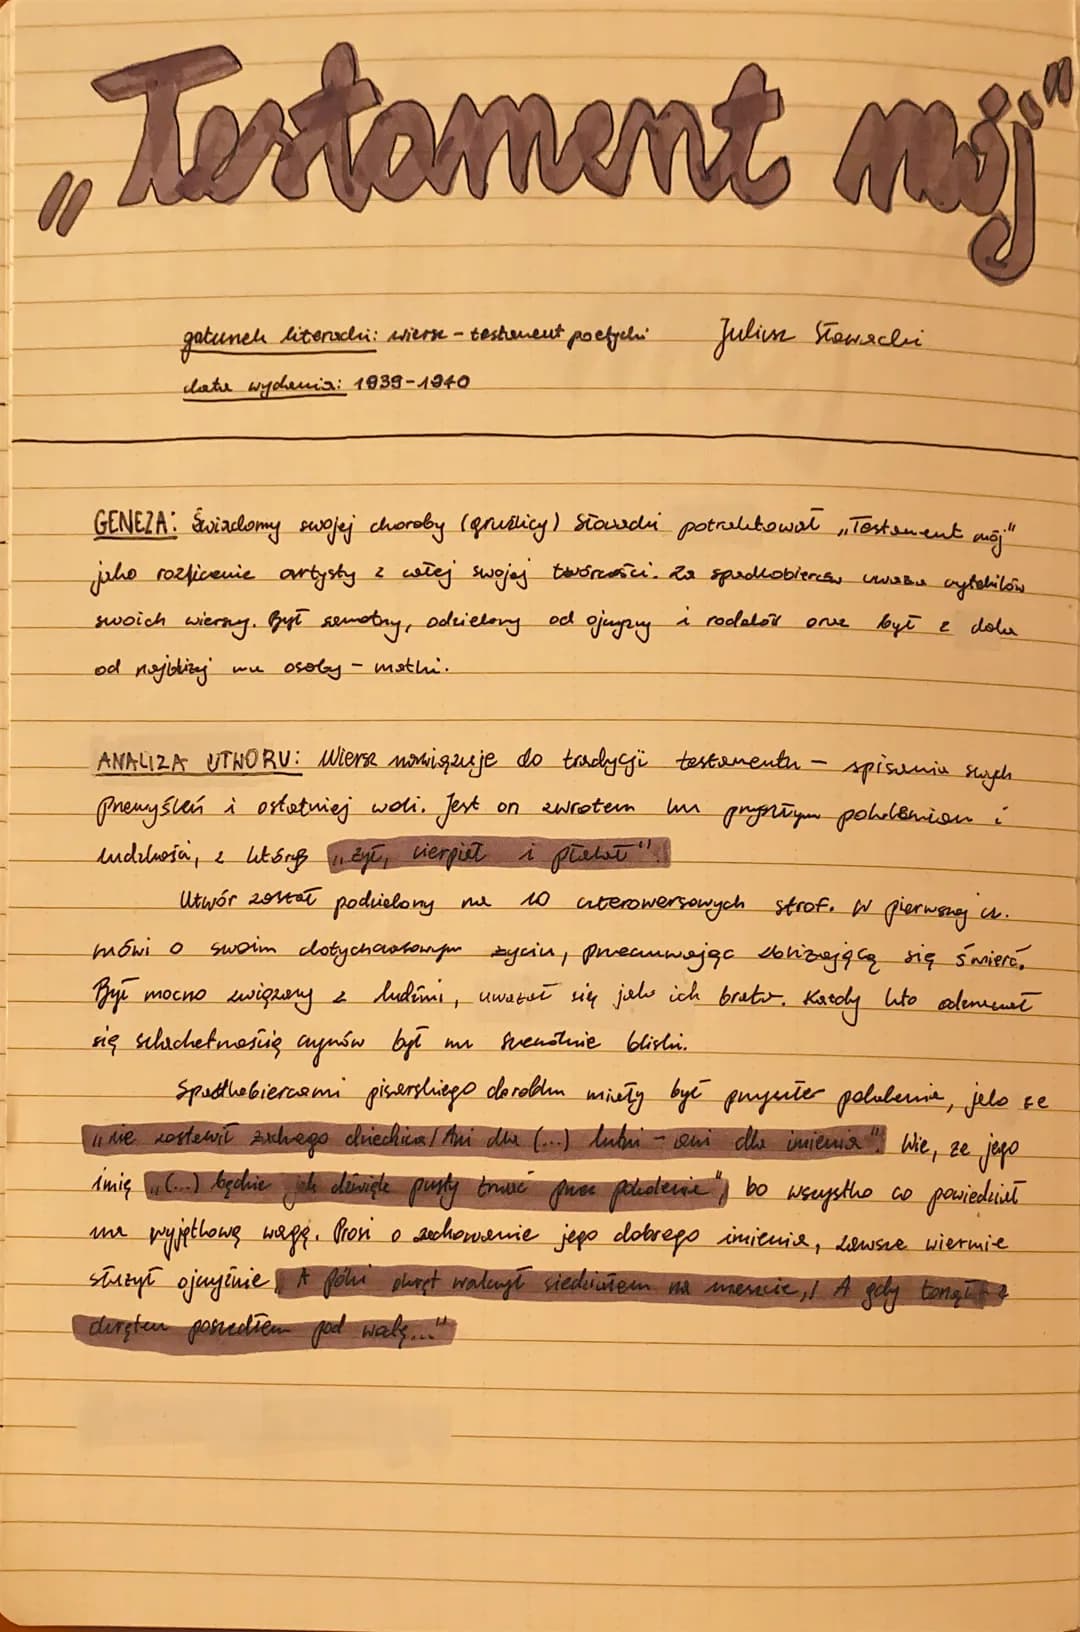 „Testament mój"
gatunek literacki: wiersz - testament poetycki Juliusz Słowacki
data wydania: 1839-1840
GENEZA: Świadomy swojej choroby (gruźlicy) Słowacki potraktował „Testament mój"
jako rozliczenie artysty z całej swojej twórczości. Za spadkobierców uważa czytelników
swoich wierszy. Był samotny, odzielony od ojczyzny i rodaków oraz był z dala
od najbliżej mu osoby - matki.
ANALIZA UTWORU: Wiersz nawiązuje do tradycji testamentu - spisania swych
przemyśleń i ostatniej woli. Jest on zwrotem ku przyszłym pokoleniom i
ludzkości, z którą „żył, cierpiał i płakał".
Utwór został podzielony na 10 czterowersowych strof. W pierwszej cz.
mówi o swoim dotychczasowym życiu, przeczuwając zbliżającą się śmierć.
Był mocno związany z ludźmi, uważał się jako ich brata. Każdy kto odznaczał
się szlachetnością czynów był mu szczególnie bliski.
Spadkobiercami pisarskiego dorobku miały być przyszłe pokolenia, jako że
„nie zostawił żadnego dziedzica / Ani dla (...) lutni - ani dla imienia". Wie, że jego
imię „(...) będzie jak dźwięk pusty trwać przez pokolenia", bo wszystko co powiedział
ma wyjątkową wagę. Prosi o zachowanie jego dobrego imienia, zawsze wiernie
służył ojczyźnie „A póki okręt walczył siedziałem na maszcie, / A gdy tonął - z
okrętem poszedłem pod wodę..."